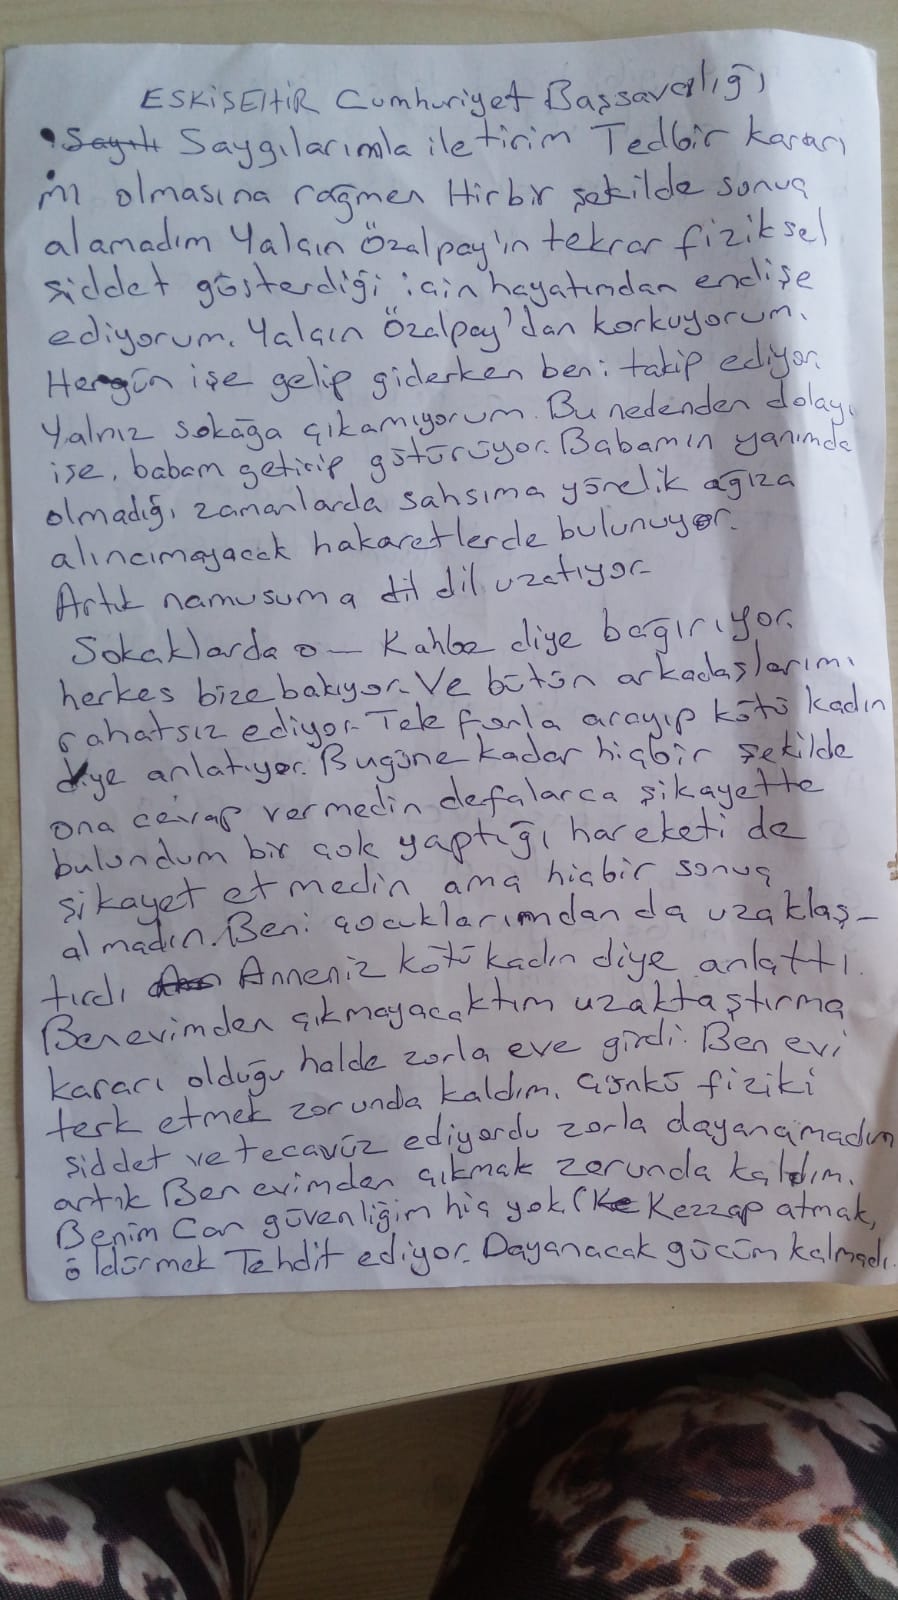 ESKİSEHİR Cumhuriyet Başsavcılığı
Saygılarımla iletirim Tedbir kararı
mı olmasına rağmen Hirbir şekilde sonuç
alamadım Yalçın Özalpay'ın tekrar fiziksel
şiddet gösterdiği için hayatımdan endişe
ediyorum. Yalçın Özalpay'dan korkuyorum.
Hergün işe gelip giderken beni takip ediyor.
Yalnız sokağa çıkamıyorum. Bu nedenden dolayı
işe, babam getirip götürüyor. Babamın yanımda
olmadığı zamanlarda sahsıma yönelik ağıza
alıncımayacak hakaretlerde bulunuyor.
Artık namusuma dil dil uzatıyor.
Sokaklarda o— Kahbe diye bağırıyor.
herkes bize bakıyor. Ve bütün arkadaşlarımı
rahatsız ediyor. Tek fonla arayıp kötü kadın
diye anlatıyor. Bugüne kadar hiçbir şekilde
ona cevap vermedin defalarca şikayette
bulundum bir çok yaptığı hareketi de
şikayet etmedin ama hiçbir sonuç
almadın. Beni çocuklarımdan da uzaklaş-
tırdı Anneniz kötü kadın diye anlattı.
Ben evimden çıkmayacaktım uzaktaştırma
kararı olduğu halde zorla eve girdi. Ben evi
terk etmek zorunda kaldım. Çünkü fiziki
şiddet ve tecavüz ediyordu zorla dayanamadım
artık Ben evimden çıkmak zorunda kaldım.
Benim Can güvenliğim hiç yok (Kezzap atmak,
öldürmek Tehdit ediyor. Dayanacak gücüm kalmadı.